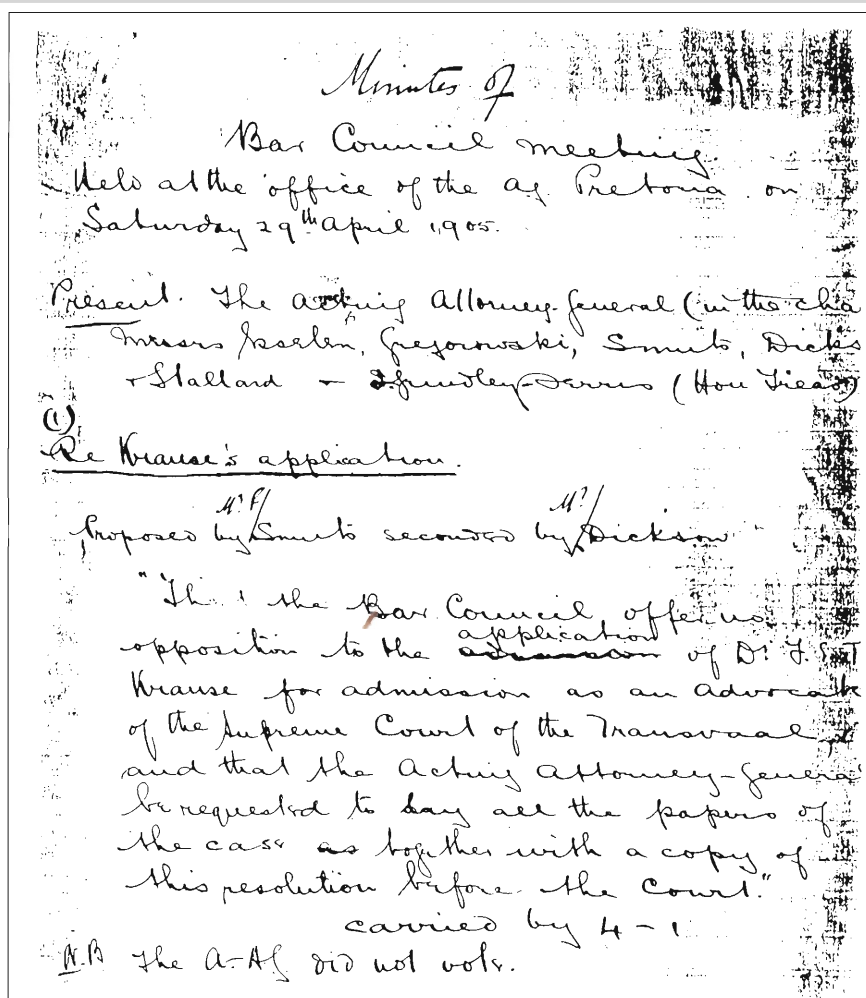 Minutes of
Bar Council meeting
Held at the office of the AG Pretoria on
Saturday 29th April 1905.
Present. The Acting Attorney-General (in the cha
Messrs Esselen, Gregorowski, Smuts, Dicks
& Stallard — Grindley-Ferris (Hon Treas)
(1)
Re Krause's application.
Proposed by Mr Smuts seconded by Mr Dickson
"Th the Bar Council offer no
opposition to the application of Dr F. E. T
Krause for admission as an Advocate
of the Supreme Court of the Transvaal,
and that the Acting Attorney-Genera
be requested to lay all the papers of
the case together with a copy of
this resolution before the Court."
carried by 4-1
N.B The A-AG did not vote.